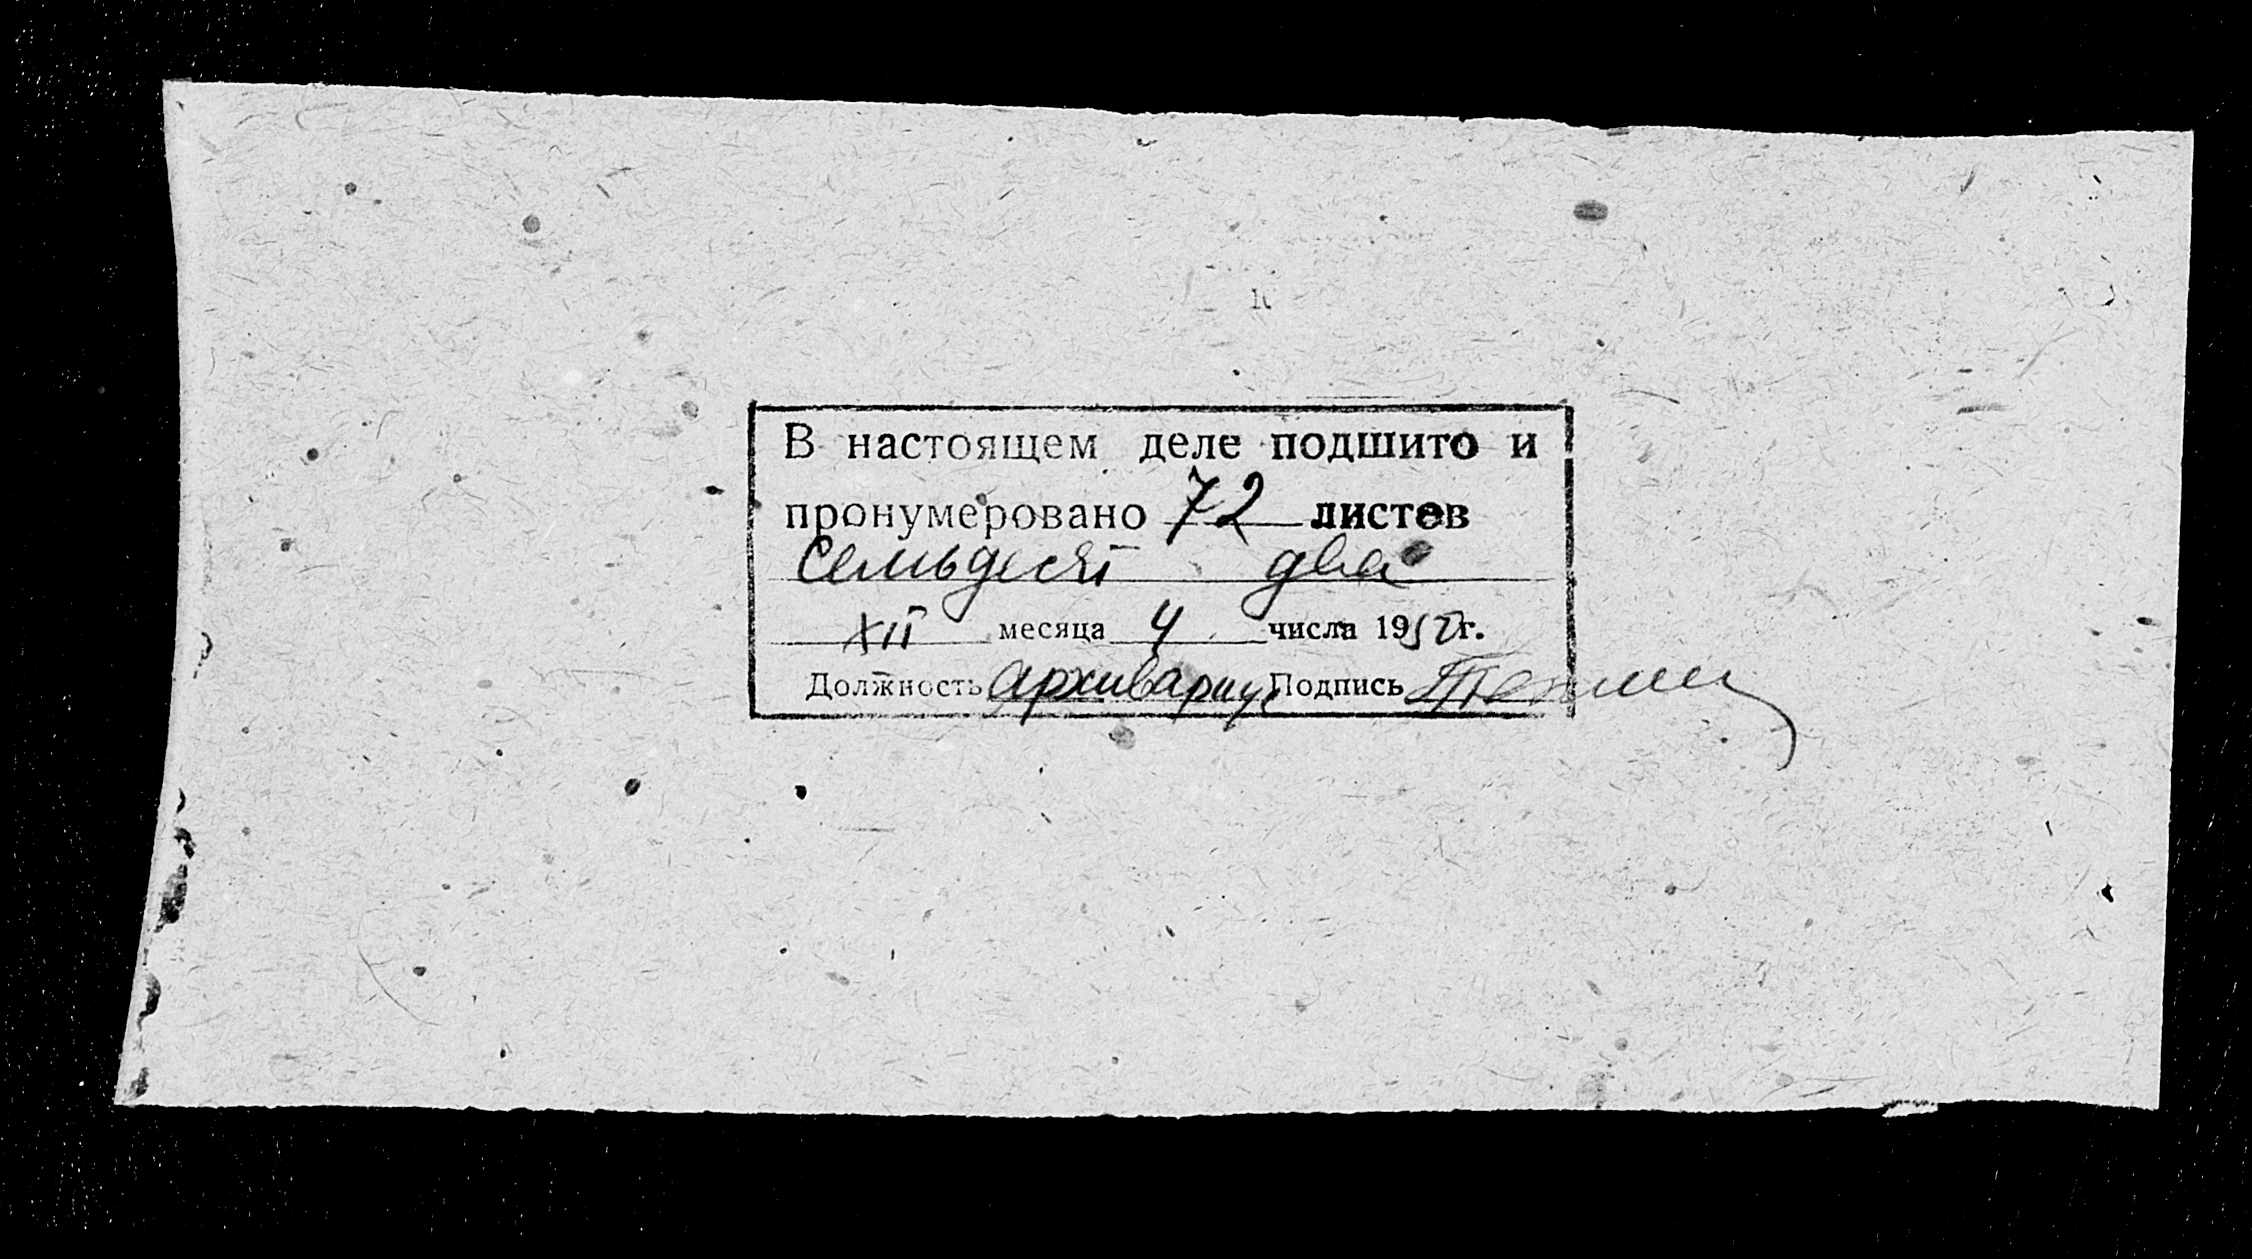 В настоящем деле подшито и
пронумеровано 72 листов
семьдесят два
XII месяца 4 числа 195 г.
Должность архивариус Подпись